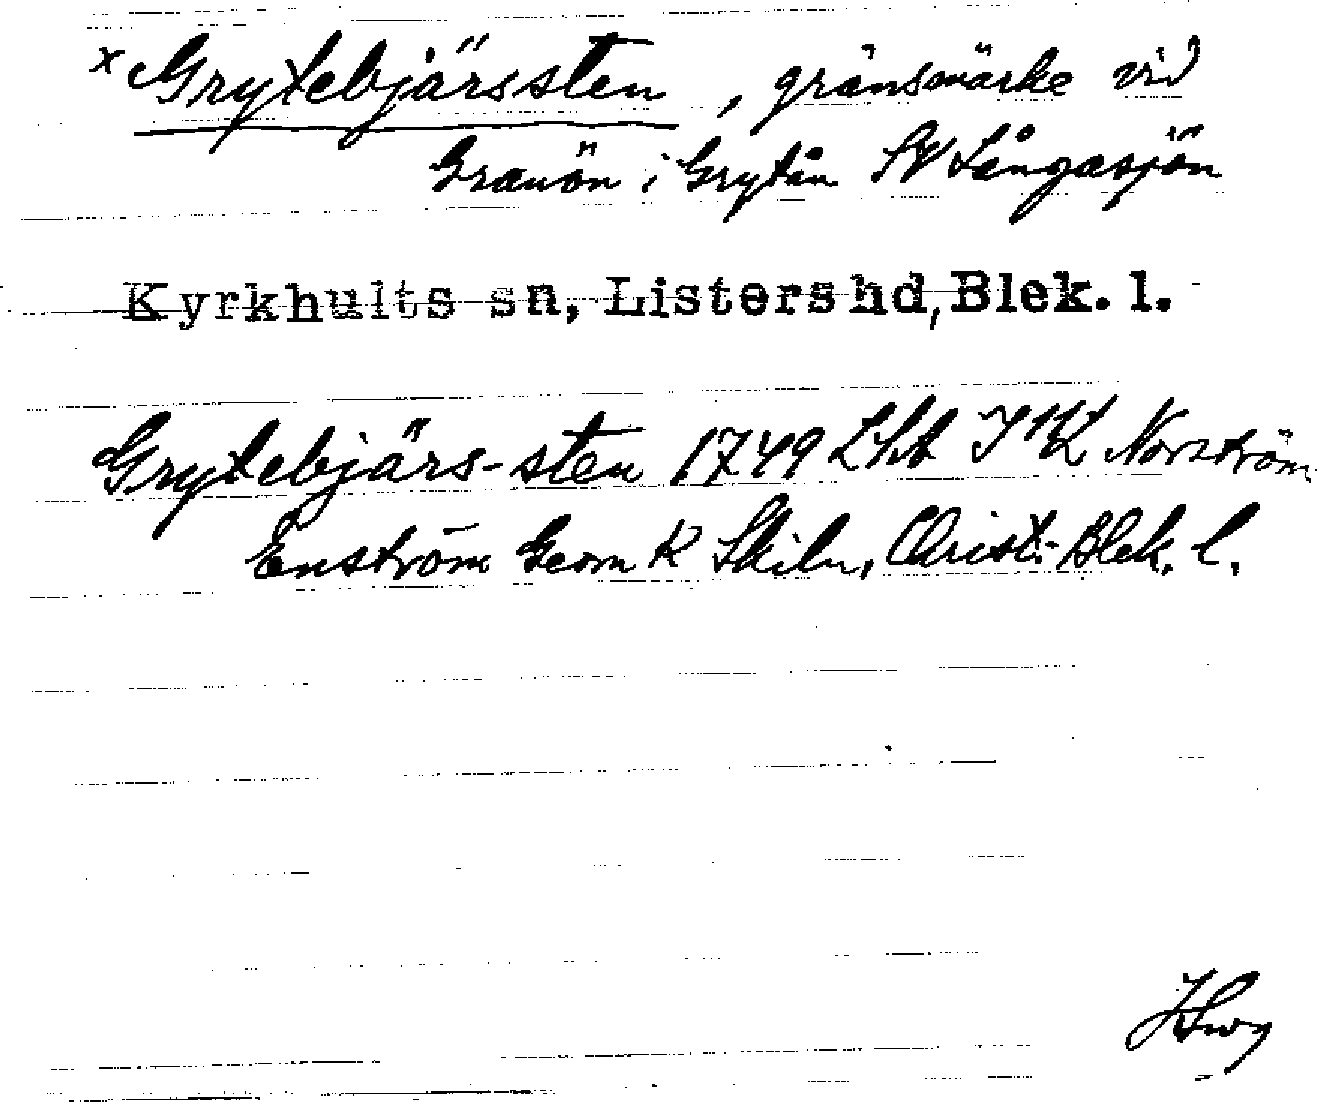 x Grytebjärssten, gränsmärke vid
Granön i Grytån SV Långasjön
Kyrkhults sn, Listers hd, Blek. l.
Grytebjärs-sten 1749 LSA Norström
Enström Geom K Skiln, Christ.-Blek. l.